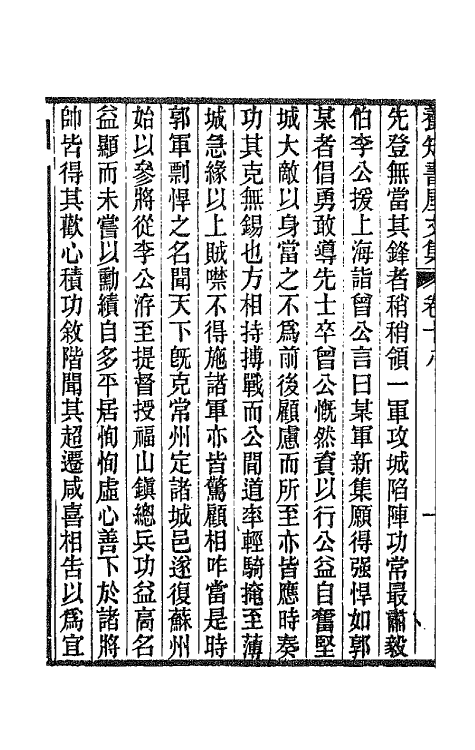 養知書屋文集 卷十八 一
先登無當其鋒者稍稍領一軍攻城陷陣功常最肅毅
伯李公援上海詣曾公言曰某軍新集願得强悍如郭
某者倡勇敢導先士卒曾公慨然資以行公益自奮堅
城大敵以身當之不爲前後顧慮而所至亦皆應時奏
功其克無錫也方相持搏戰而公間道率輕騎掩至薄
城急緣以上賊噤不得施諸軍亦皆驚顧相咋當是時
郭軍剽悍之名聞天下旣克常州定諸城邑遂復蘇州
始以參將從李公洊至提督授福山鎭總兵功益高名
益顯而未嘗以勳績自多平居恂恂虛心善下於諸將
帥皆得其歡心積功敘階聞其超遷咸喜相告以爲宜